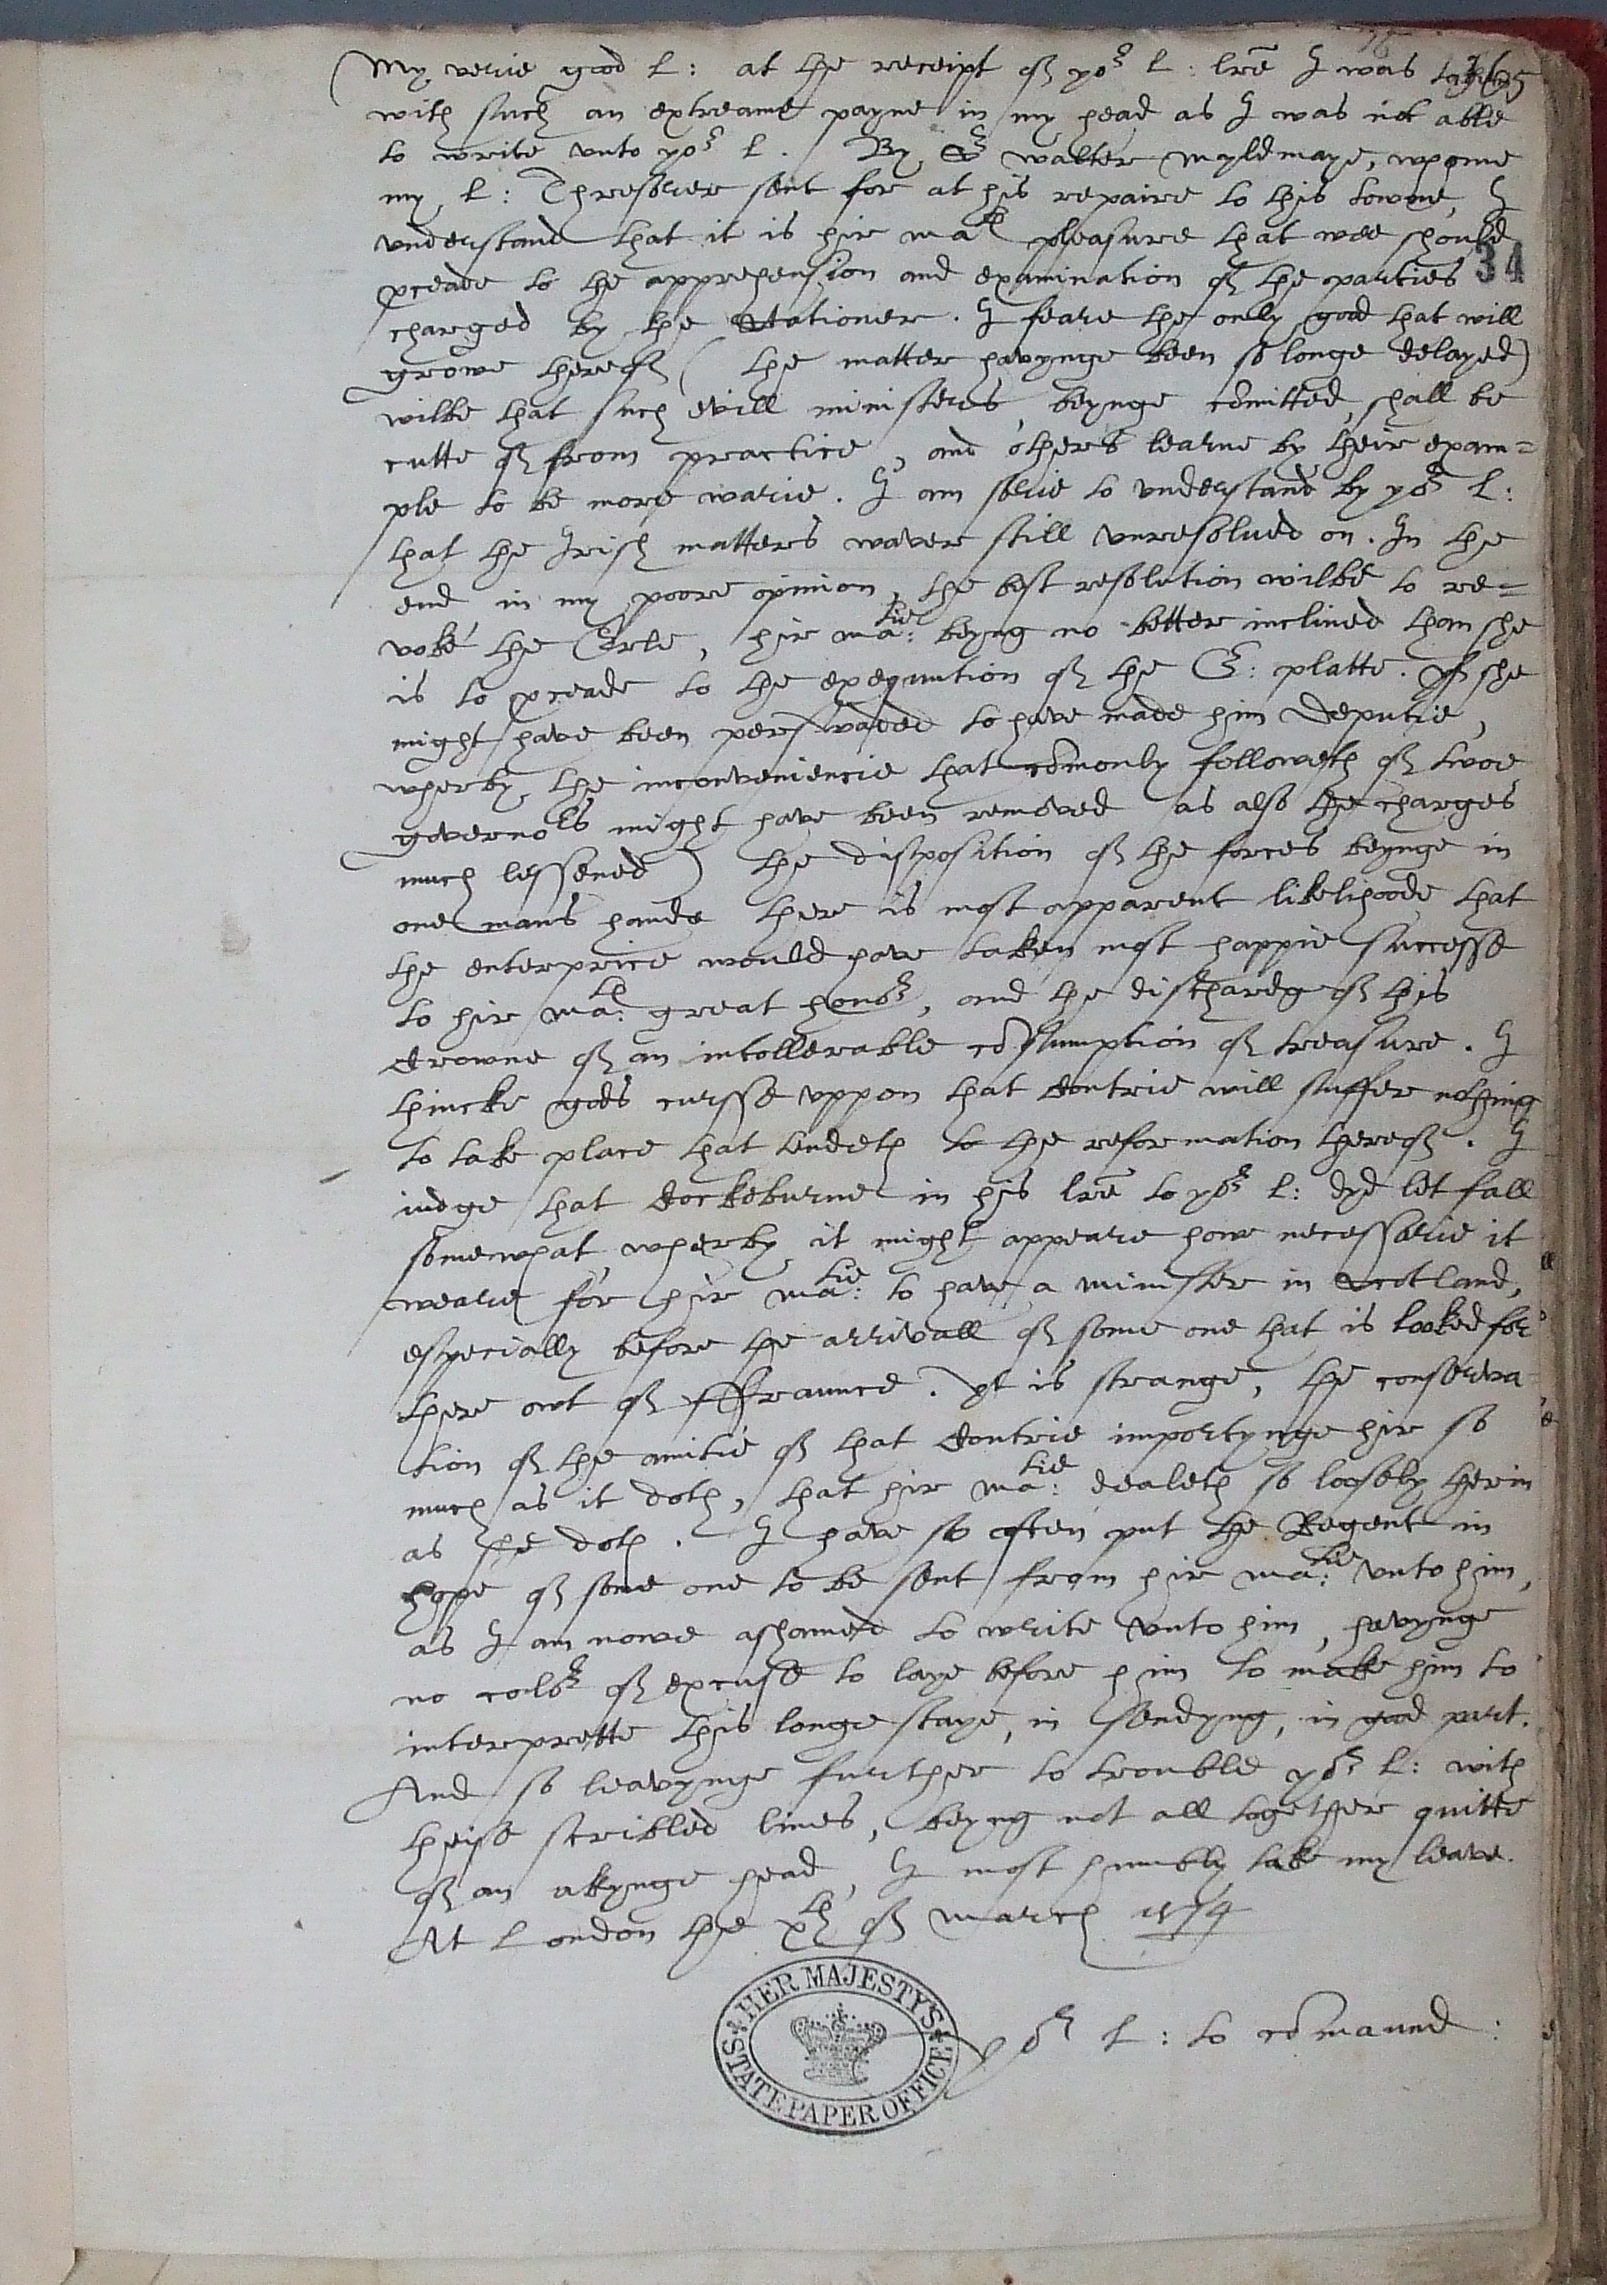 My verie good L: at the receipt of yor L: lre I was taken
with such an extreame payne in my head as I was not able
to write vnto yor L. By Sr walter Myldmaye, whome
my L: Thresorer sent for at his repaire to this towne, I
vnderstand that it is hir mats pleasure that wee should
proceade to the apprehension and examination of the parties 34
charged by the Stationer. I feare the only good that will
growe therof ( the matter havynge been so longe delayed)
wilbe that such evill ministers, beynge comitted, shall be
cutte of from practice, and others learne by their exam=
ple to be more warie. I am sorie to vnderstand by yor L:
that the Irish matters waver still vnresolued on. In the
end in my poore opinion, the best resolution wilbe to re=
voke the Erle, hir matie: beyng no better inclined than she
is to proceade to the exequution of the E: platte. yf she
might have been perswaded to have made him Deputie,
wherby the inconveniencie that comonly followeth of twoe
governors might have been removed as also the charges
much lessened) the disposition of the forces beynge in
one mans hands there is most apparent likelihoode that
the enterprice would have taken most happie successe
to hir mats: great honor, and the dischardg of this
Crowne of an intollerable consumption of treasure. I
thincke gods cursse vppon that Contrie will suffer nothing
to take place that tendeth to the reformation therof. I
iudge that Cockeburne in his lre to yor L: dyd let fall
somewhat wherby it might appeare howe necessarie it
weare for hir matie: to have a minister in Scotland,
especially before the arrivall of some one that is looked for
there owt of ffraunce. yt is strange, the conserva-
tion of the amitie of that Contrie importynge hir so
much as it doth, that hir matie: dealeth so loosely herin
as she doth. I have so often put the Regent in
hope of some one to be sent from hir matie: vnto him,
as I am nowe ashamed to write vnto him, havynge
no color of excuse to laye before him to make him to
interprette this longe staye, in sendyng, in good part.
And so leavynge further to trouble yor L: with
theise scribled lines, beyng not all together quitte
of an akynge head, I most humbly take my leave.
At London the xth of March 1574
yor L: to comaund:
HER MAJESTY'S STATE PAPER OFFICE